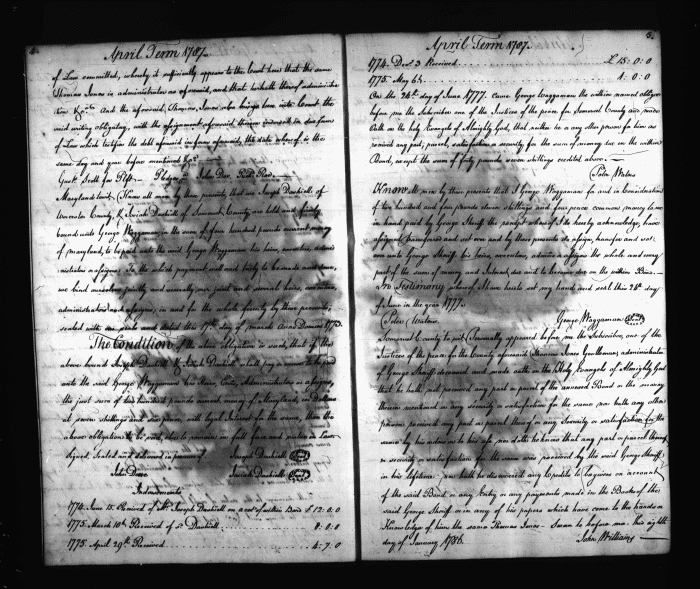 April Term 1787.
of Law committed, whereby it sufficiently appears to the Court here that the same
Thomas Jones is administrator as aforesaid, and that he hath thereof administra
tion &c. And the aforesaid Thomas Jones also brings here into Court the
said writing obligatory, with the assignment aforesaid thereon endorsed in due form
of Law which testifies the debt aforesaid in form aforesaid, the date whereof is the
same day and year before mentioned &c.
John Doe, Rich. Roe.
Maryland Know all men by these presents that we Joseph Dashiell of
Worcester County, & Josiah Dashiell of Somerset County are held and firmly
bound unto George Waggaman in the sum of four hundred pounds current money
of maryland, to be paid unto the said George Waggaman his heirs, executors, admin
istrators or assigns; To the which payment well and truly to be made and done,
we bind ourselves jointly and severally our joint and several heirs, executors,
administrators and assigns, in and for the whole firmly by these presents,
sealed with our seals and dated this 17th day of march Anno Domini 1773.
The Condition of the above obligation is such, that if the
above bound Joseph Dashiell & Josiah Dashiell shall pay or
unto the said George Waggaman his Heirs, Exrs, Administrators or assigns,
the just sum of two hundred pounds current money of Maryland, in Dollars
at seven shillings and six pence, with legal Interest for the same, then the
above obligation to be void, else to remain in full force and virtue in Law
signed, sealed and delivered in presence of Joseph Dashiell
John Done Josiah Dashiell
Indorsements
1774 June 15. Received of Mr Joseph Dashiell on acct of within Bond £ 12:0:0
1775 March 10th Received of Dashiell 8:0:0
1775 April 29th Received 4:7:0
5
April Term 1787.
1774. Decr 3 Received £ 15:0:0
1775 May 6th 1:0:0
On the 24th day of June 1777. Came George Waggaman the within named obligee
before me the Subscriber one of the Justices of the peace for Somerset County and made
Oath on the holy Evangels of Almighty God, that neither he or any other person for him as
received any part, parcel, satisfaction or security for the sum of money due on the within
Bond, except the sum of forty pounds seven shillings credited above
Peter Waters
Know all men by these presents that I George Waggaman for and in Consideration
of two hundred and four pounds eleven shillings and four pence common money to me
in hand paid by George Shirriff the receipt whereof I do hereby acknowledge, have
assigned transferred and set over and by these presents do assign, transfer and set
over unto George Shirriff his heirs, executors, adminrs or assigns the whole and every
part of the sum of money and Interest, due and to become due on the within Bond.
In Testimony whereof I have hereto set my hand and seal this 24th day
of June in the year 1777.
Peter Waters George Waggaman (Seal)
Somerset County to wit; Personally appeared before me the Subscriber, one of the
Justices of the peace for the County aforesaid Thomas Jones Gentleman, administrator
of George Shirriff deceased and made oath on the Holy Evangels of Almighty God
that he hath not received any part or parcel of the annexed Bond or the money
therein mentioned or any security or satisfaction for the same nor hath any other
person received any part or parcel thereof or any Security or satisfaction for the
same by his orders or to his use, nor doth he know that any part or parcel thereof
or security or satisfaction for the same was received by the said George Shirriff
in his lifetime; nor hath he discovered any Credits to be given on account
of the said Bond or any Entry or any payments made in the Books of the
said George Shirriff or in any of his papers which have come to the hands or
Knowledge of him the same Thomas Jones. Sworn to before me this eighth
day of January 1786. John Williams